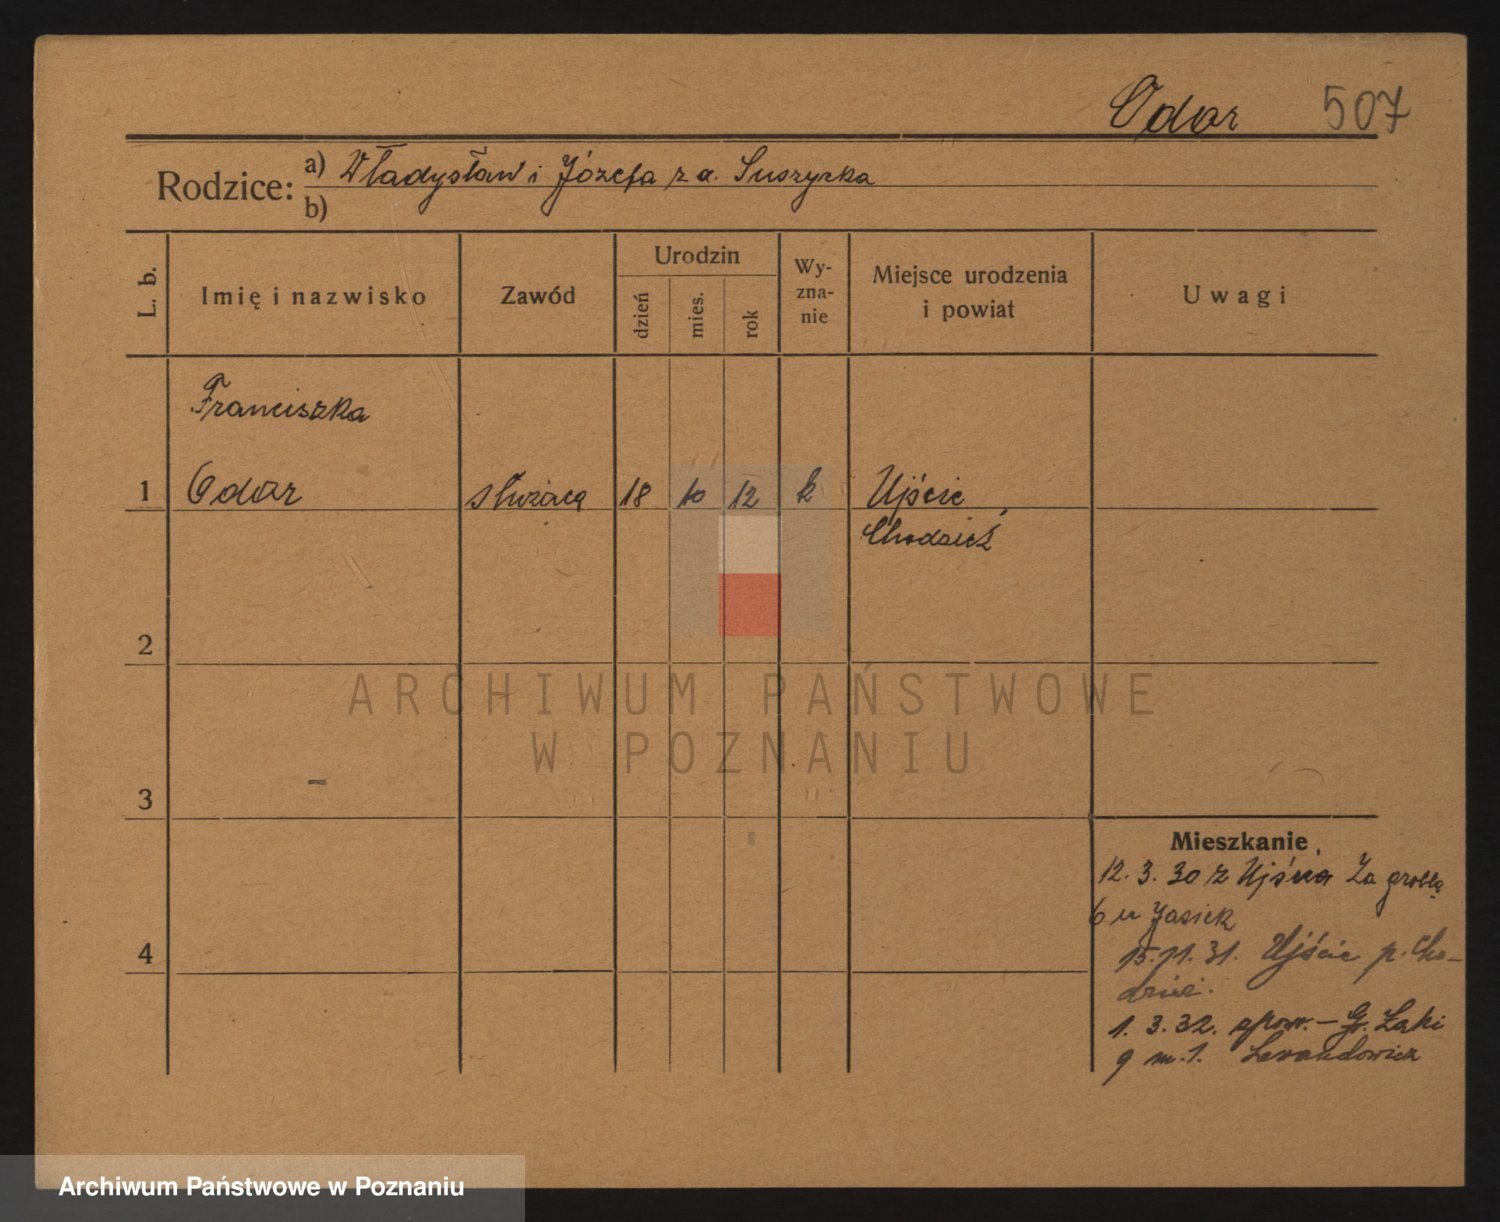 Odor 507
Rodzice: a) Władysław i Józefa z d. Suszycka
b)
L. b. Imię i nazwisko Zawód Urodzin dzień mies. rok Wy-zna-nie Miejsce urodzenia i powiat Uwagi
Franciszka
1 Odor służąca 18 10 12 k Ujście
Chodzież
2
ARCHIWUM PAŃSTWOWE
W POZNANIU
3
Mieszkanie
12. 3. 30 z Ujścia Za groblą
6 u Jasiek
15. 11. 31. Ujście p. Cho-
4
dzież.
1. 3. 32. zpow. – Gr. Łąki
9 m. 1.
Archiwum Państwowe w Poznaniu